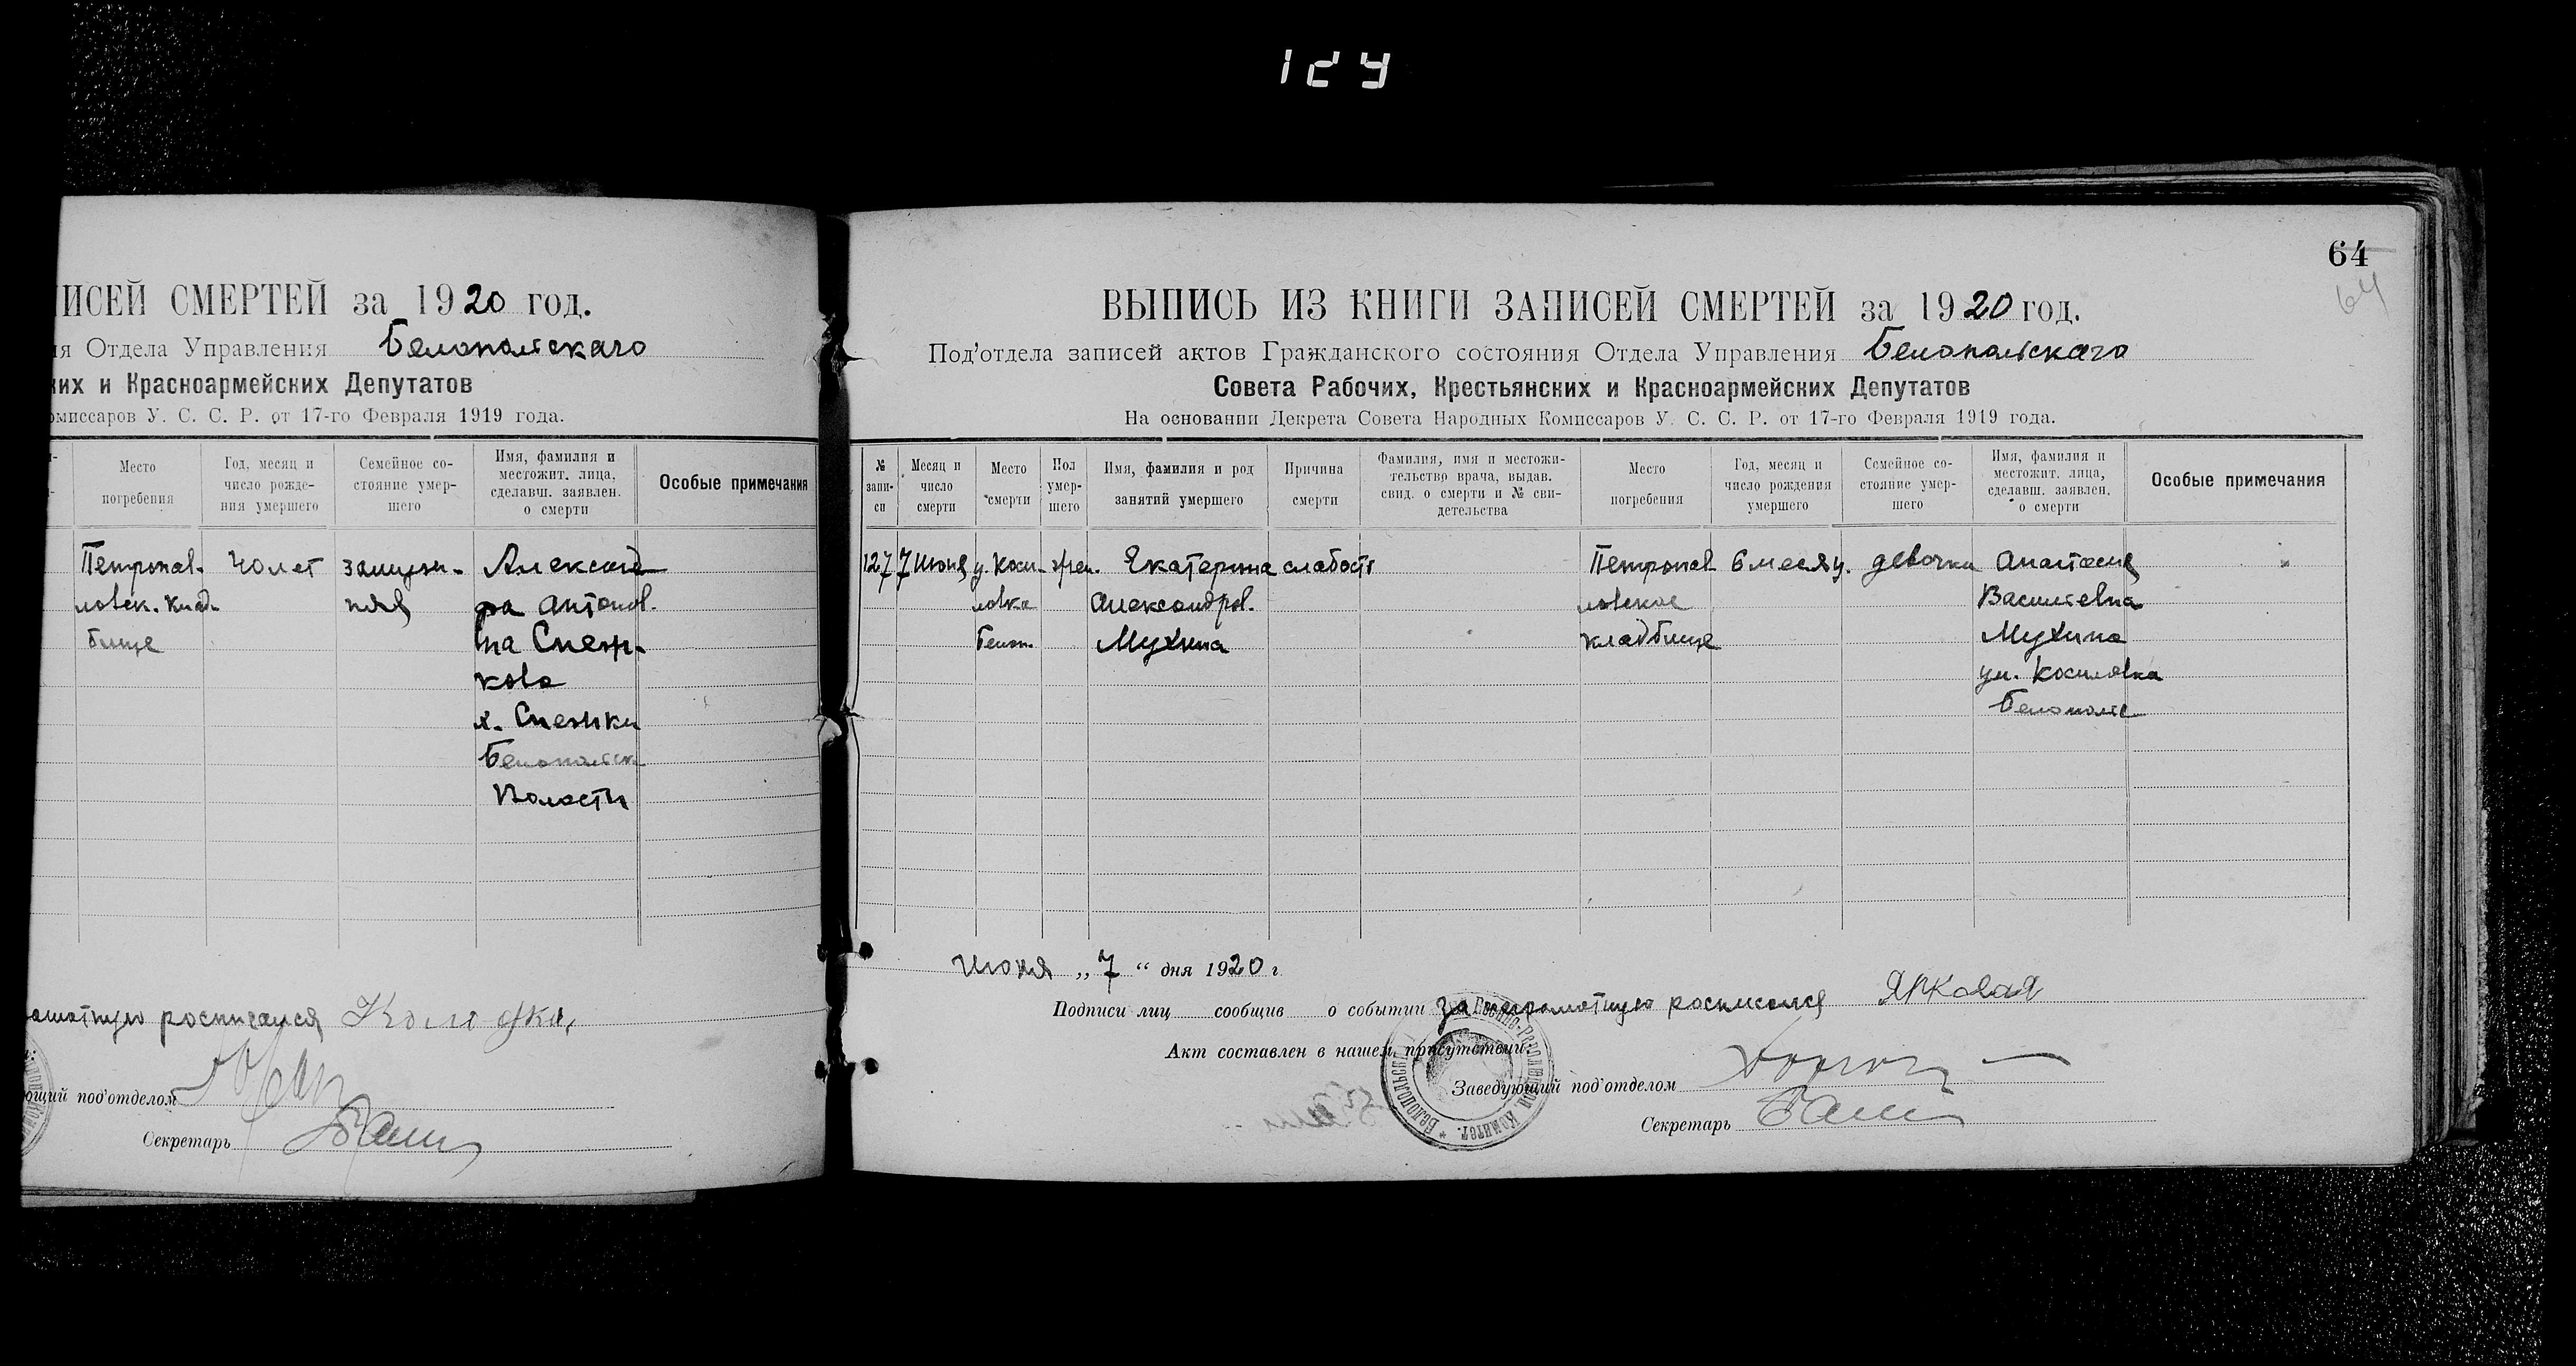 124
ИСЕЙ СМЕРТЕЙ за 1920 год.
ия Отдела Управления Белопольскаго
ких и Красноармейских Депутатов
омиссаров У. С. С. Р. от 17-го Февраля 1919 года.
Место погребения
Год, месяц и число рожде-ния умершего
Семейное со-стояние умер-шего
Имя, фамилия и местожит. лица, сделавш. заявлен. о смерти
Особые примечания
Петропав-
ловск. клад-
бище
40 лет
замуж-
няя
Александ
ра Антонов-
на Снеж-
кова
х. Снежки
Белопольск
Волости
росписался
ющий под'отделом
Секретарь
64
64
ВЫПИСЬ ИЗ КНИГИ ЗАПИСЕЙ СМЕРТЕЙ за 1920 год.
Под'отдела записей актов Гражданского состояния Отдела Управления Белопольскаго
Совета Рабочих, Крестьянских и Красноармейских Депутатов
На основании Декрета Совета Народных Комиссаров У. С. С. Р. от 17-го Февраля 1919 года.
№ запи-си
Месяц и число смерти
Место смерти
Пол умер-шего
Имя, фамилия и род занятий умершего
Причина смерти
Фамилия, имя и местожи-тельство врача, выдав. свид. о смерти и № сви-детельства
Место погребения
Год, месяц и число рождения умершего
Семейное со-стояние умер-шего
Имя, фамилия и местожит. лица, сделавш. заявлен. о смерти
Особые примечания
127
7 Июня
у. Коси-
ловка
Белоп.
жен.
Екатерина
Александров.
Мухина
слабость
Петропав
ловское
кладбище
6 месяц.
девочка
Анастасия
Васильевна
Мухина
ул. Косиловка
Белополье
Июня „ 7 “ дня 1920 г.
Подписи лиц сообщив о событии За неграмотную росписался Яркова
Акт составлен в нашем присутствии.
Заведующий под'отделом
Секретарь